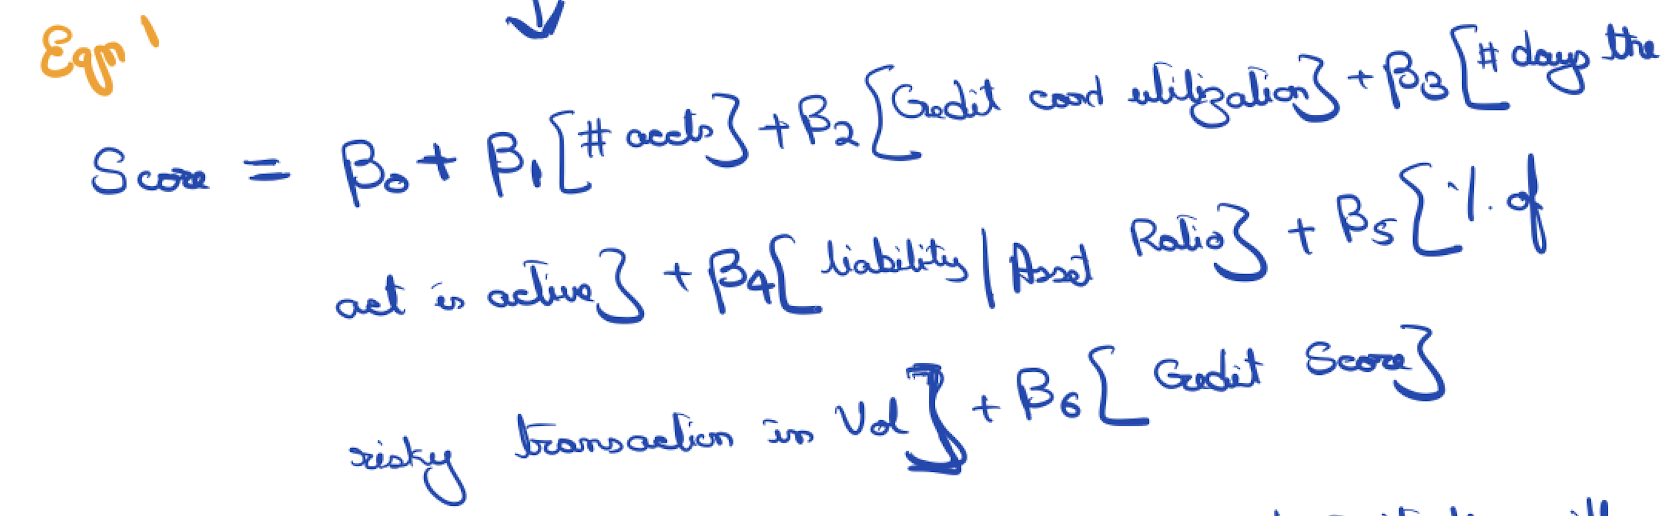 Eqn 1
Score = β0 + β1 [# accts] + β2 [Credit card utilization] + β3 [# days the
act is active] + β4 [liability | Asset Ratio] + β5 [% of
risky transaction in Vol] + β6 [Credit Score]